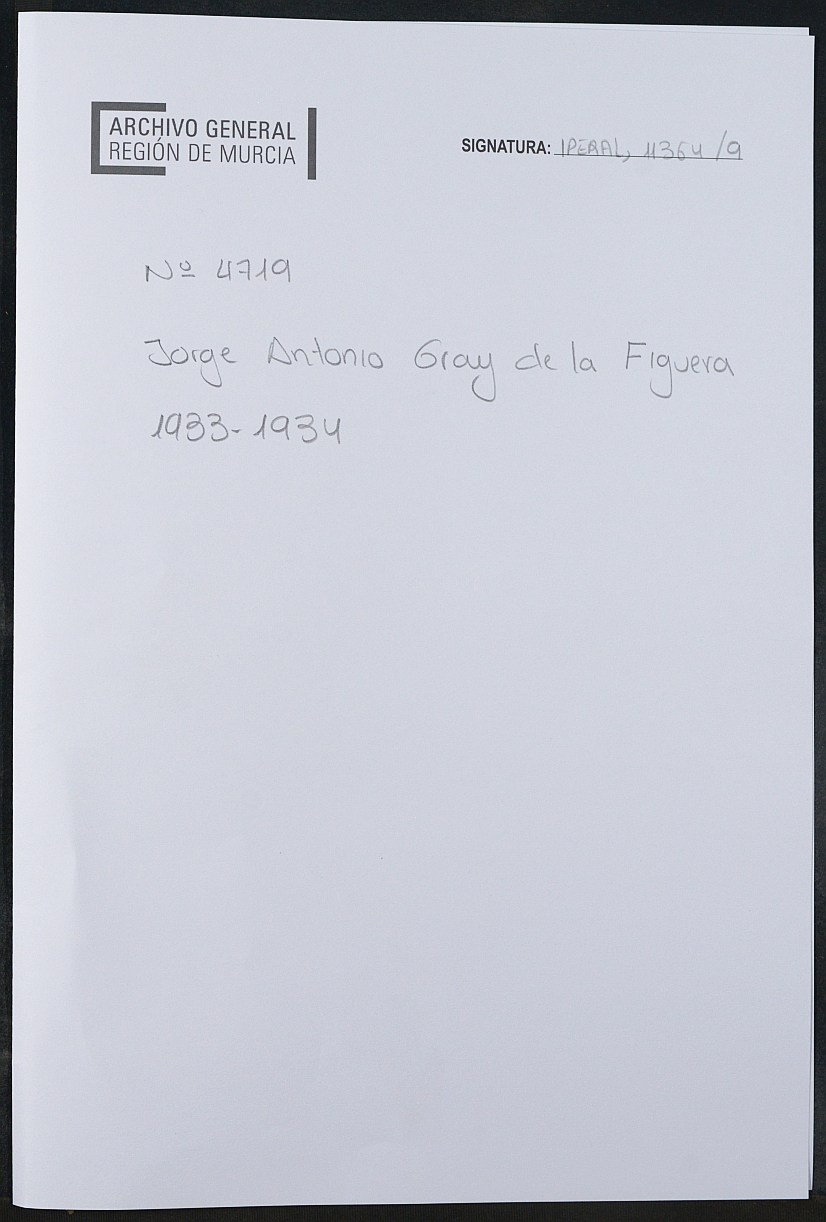 ARCHIVO GENERAL
REGIÓN DE MURCIA
SIGNATURA: IPERAL, 11364/9
Nº 4719
Jorge Antonio Gray de la Figuera
1933-1934